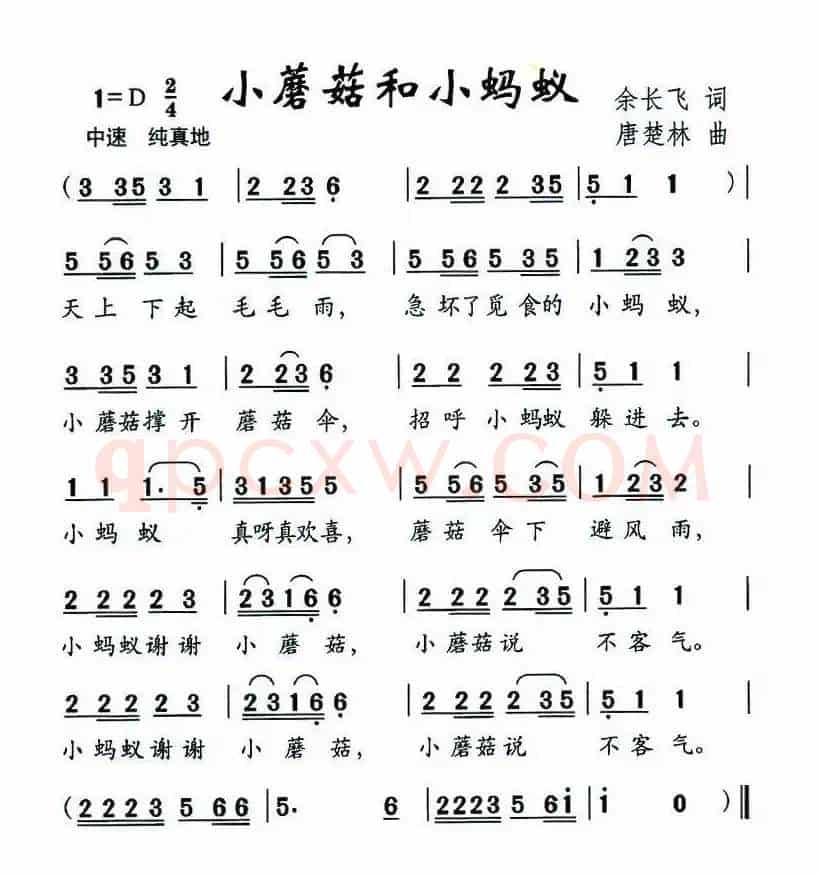 小蘑菇和小蚂蚁
1=D 2/4
余长飞 词
中速 纯真地
唐楚林 曲
(3 35 3 1 | 2 23 6̣ | 2 22 2 35 | 5̣ 1 1 )|
5 56 5 3 | 5 56 5 3 | 5 56 5 35 | 1 23 3 |
天 上 下 起 毛 毛 雨, 急 坏 了 觅 食 的 小 蚂 蚁,
3 35 3 1 | 2 23 6̣ | 2 2 2 23 | 5̣ 1 1 |
小 蘑 菇 撑 开 蘑 菇 伞, 招 呼 小 蚂 蚁 躲 进 去。
qpcxw.COM
1 1 1. 5̣ | 3135 5 | 5 56 5 35 | 1 23 2 |
小 蚂 蚁 真呀真欢喜, 蘑 菇 伞 下 避 风 雨,
2 22 2 3 | 2316̣ 6̣ | 2 22 2 35 | 5̣ 1 1 |
小 蚂 蚁 谢 谢 小 蘑 菇, 小 蘑 菇 说 不 客 气。
2 22 2 3 | 2316̣ 6̣ | 2 22 2 35 | 5̣ 1 1 |
小 蚂 蚁 谢 谢 小 蘑 菇, 小 蘑 菇 说 不 客 气。
(2223 5 66 | 5. 6 | 2223 5 6i̇ | i̇ 0 )‖